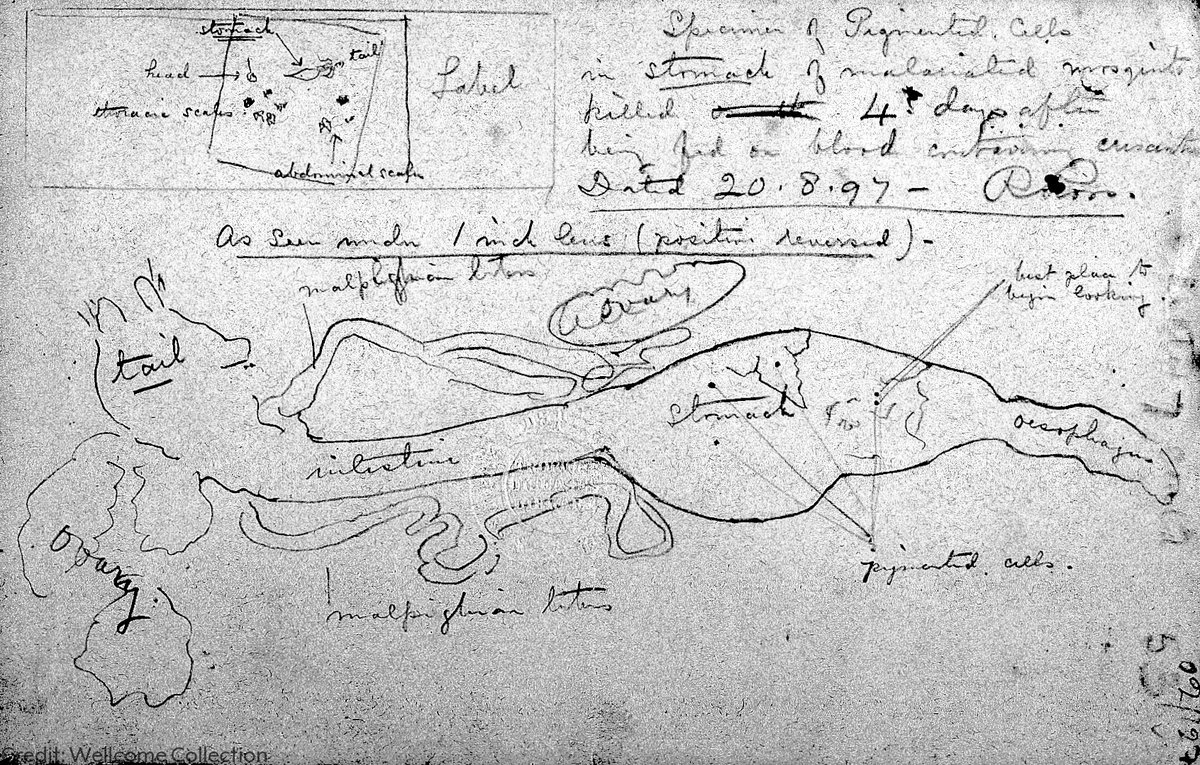 stomach
tail
head
thoracic scales
abdominal scales
Label
Specimen of Pigmented Cells
in stomach of malariated mosquito
killed 4 days after
being fed on blood containing
Dated 20.8.97 - R. Ross.
As seen under 1 inch lens (position reversed) -
malpighian
Ovary
best place to
begin looking.
tail
stomach
oesophagus
intestine
Ovary.
pigmented cells.
malpighian
Credit: Wellcome Collection